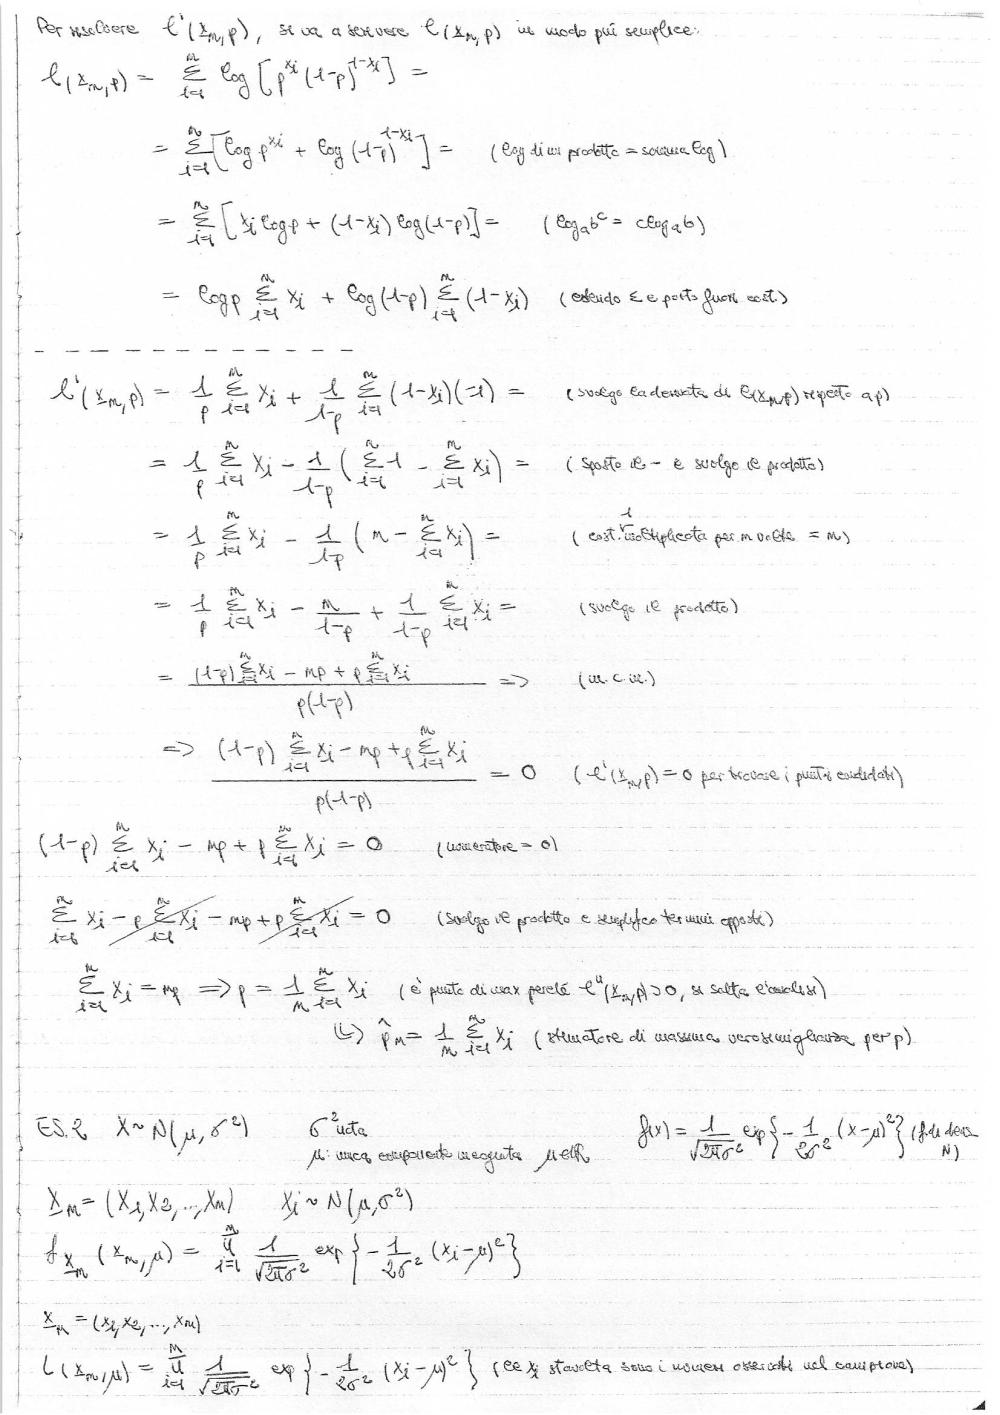 Per risolvere l'(x_n, p), si va a scrivere l(x_n, p) in modo più semplice:
l(x_n, p) = Σ_{i=1}^n log [p^{x_i} (1-p)^{1-x_i}] =
= Σ_{i=1}^n [log p^{x_i} + log (1-p)^{1-x_i}] = (log di un prodotto = somma log)
= Σ_{i=1}^n [x_i log p + (1-x_i) log(1-p)] = (log_a b^c = c log_a b)
= log p Σ_{i=1}^n x_i + log(1-p) Σ_{i=1}^n (1-x_i) (estendo Σ e porto fuori cost.)
l'(x_n, p) = 1/p Σ_{i=1}^n x_i + 1/(1-p) Σ_{i=1}^n (1-x_i)(-1) = (svolgo la derivata di l(x_n, p) rispetto a p)
= 1/p Σ_{i=1}^n x_i - 1/(1-p) (Σ_{i=1}^n 1 - Σ_{i=1}^n x_i) = (sposto il - e svolgo il prodotto)
= 1/p Σ_{i=1}^n x_i - 1/(1-p) (n - Σ_{i=1}^n x_i) = (cost. 1 moltiplicata per n volte = n)
= 1/p Σ_{i=1}^n x_i - n/(1-p) + 1/(1-p) Σ_{i=1}^n x_i = (svolgo il prodotto)
= ((1-p) Σ_{i=1}^n x_i - np + p Σ_{i=1}^n x_i) / p(1-p) => (m.c.m.)
=> ((1-p) Σ_{i=1}^n x_i - np + p Σ_{i=1}^n x_i) / p(1-p) = 0 (l'(x_n, p) = 0 per trovare i punti candidati)
(1-p) Σ_{i=1}^n x_i - np + p Σ_{i=1}^n x_i = 0 (numeratore = 0)
Σ_{i=1}^n x_i - p Σ_{i=1}^n x_i - np + p Σ_{i=1}^n x_i = 0 (svolgo il prodotto e semplifico termini opposti)
Σ_{i=1}^n x_i = np => p = 1/n Σ_{i=1}^n x_i (è punto di max perché l''(x_n, p) > 0, si salta l'analisi)
(L) p̂_n = 1/n Σ_{i=1}^n x_i (stimatore di massima verosimiglianza per p)
ES.2 X ~ N(μ, σ²) σ² nota f(x) = 1/√2πσ² exp{-1/2σ² (x-μ)²} (f. di dens. N)
μ: unica componente incognita μ∈ℝ
X_n = (X_1, X_2, .., X_n) X_i ~ N(μ, σ²)
f_{X_n} (x_n, μ) = Π_{i=1}^n 1/√2πσ² exp{-1/2σ² (x_i-μ)²}
x_n = (x_1, x_2, ..., x_n)
L(x_n, μ) = Π_{i=1}^n 1/√2πσ² exp{-1/2σ² (x_i-μ)²} (le x_i stavolta sono i numeri osservati nel campione)